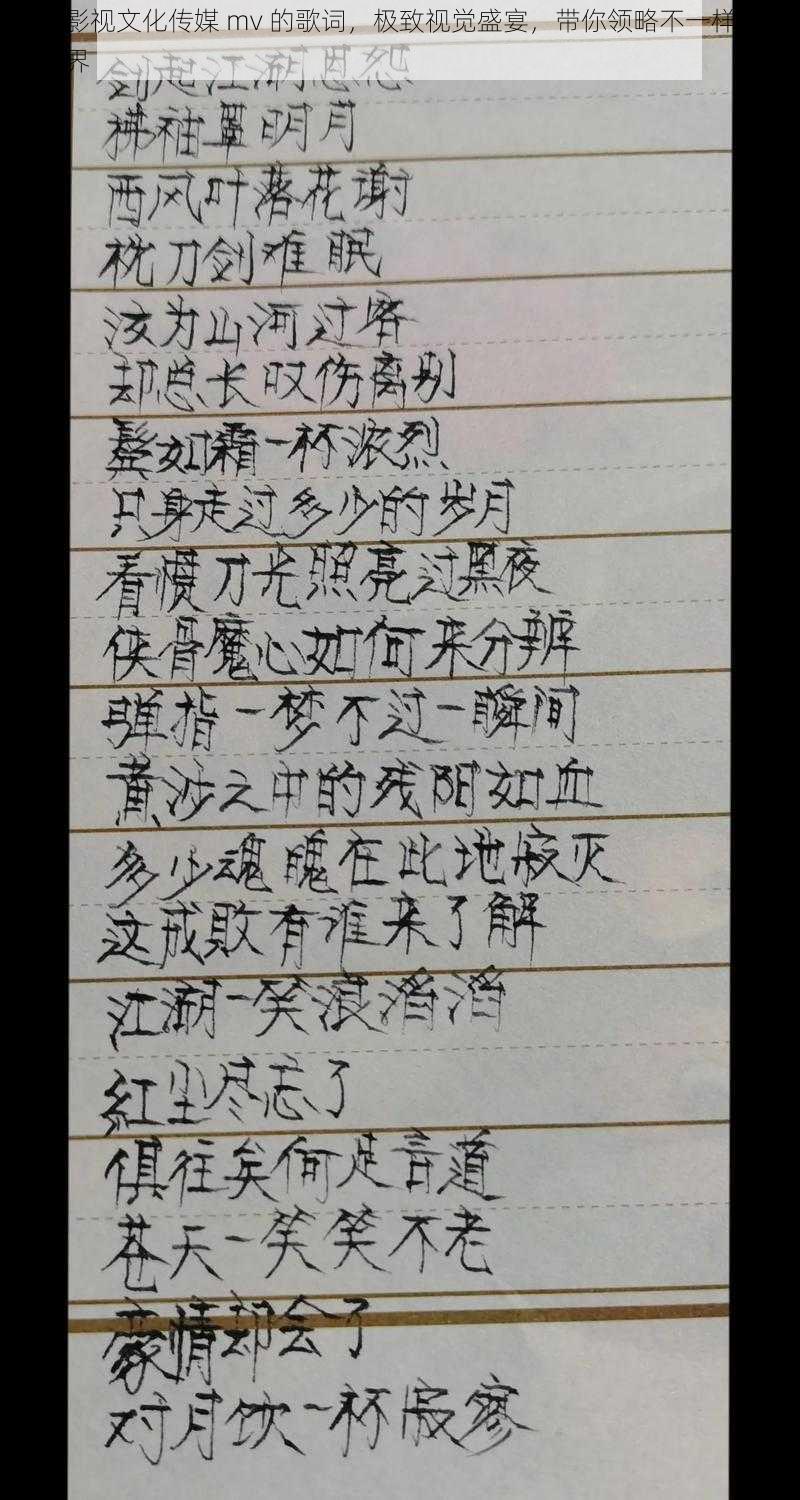 影视文化传媒 mv 的歌词，极致视觉盛宴，带你领略不一样
界
剑起江湖恩怨
拂袖罩明月
西风叶落花谢
枕刀剑难眠
汝为山河过客
却总长叹伤离别
鬓如霜一杯浓烈
只身走过多少的岁月
看惯刀光照亮过黑夜
侠骨魔心如何来分辨
弹指一梦不过一瞬间
黄沙之中的残阳如血
多少魂魄在此地寂灭
这成败有谁来了解
江湖一笑浪滔滔
紅尘尽忘了
俱往矣何足言道
苍天一笑笑不老
豪情却会了
对月饮一杯寂寥